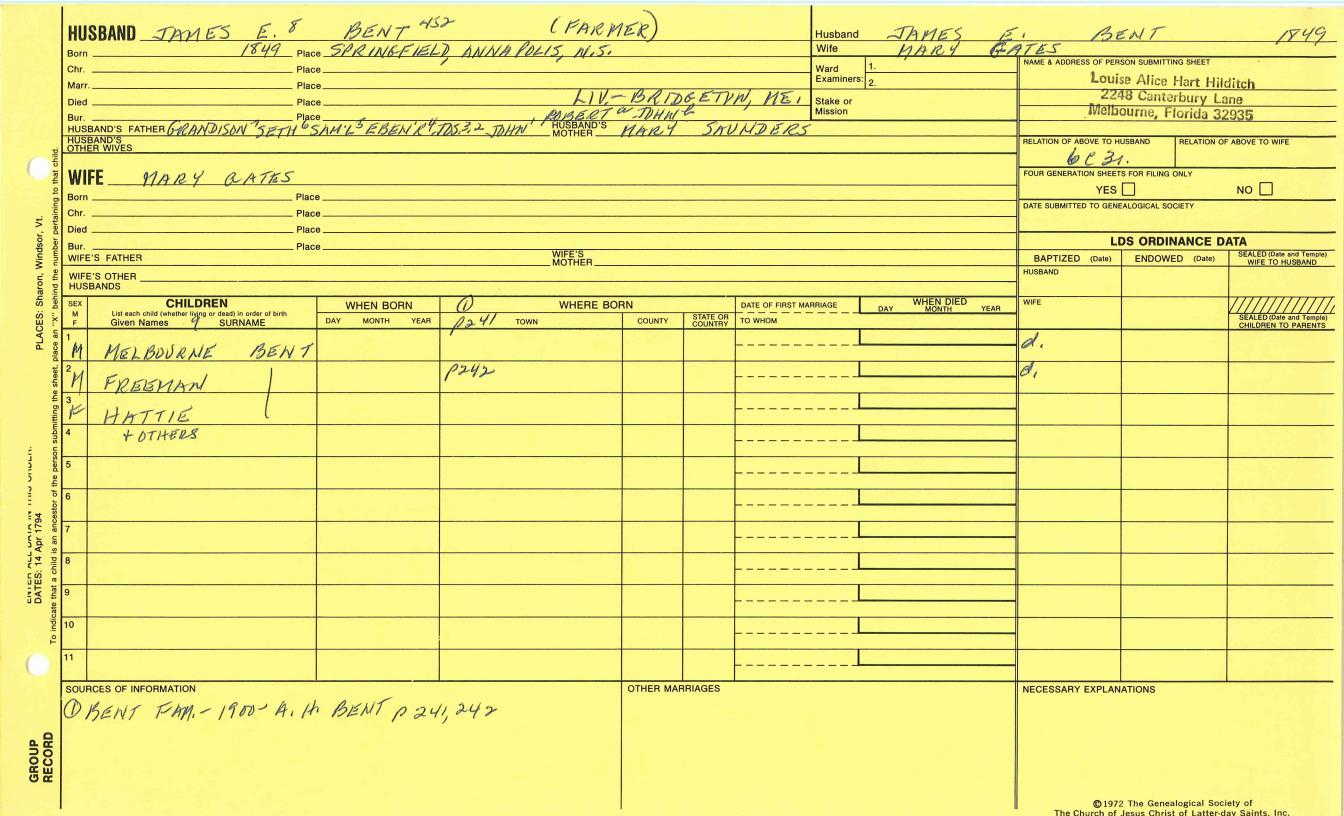 HUSBAND JAMES E. 8 BENT 452 (FARMER)
Born 1849 Place SPRINGFIELD, ANNAPOLIS, N.S.
Chr. Place
Marr. Place
Died Place LIV.- BRIDGETON, ME.
Bur. Place ROBERT a JOHN b
HUSBAND'S FATHER GRANDISON 7 SETH 6 SAM'L 5 EBEN'R 4, JOS. 3,2 JOHN 1 HUSBAND'S MOTHER MARY SAUNDERS
HUSBAND'S OTHER WIVES
WIFE MARY GATES
Born Place
Chr. Place
Died Place
Bur. Place
WIFE'S FATHER WIFE'S MOTHER
WIFE'S OTHER HUSBANDS
Husband JAMES E. BENT 1849
Wife MARY GATES
Ward Examiners: 1.
2.
Stake or Mission
NAME & ADDRESS OF PERSON SUBMITTING SHEET
Louise Alice Hart Hilditch
2248 Canterbury Lane
Melbourne, Florida 32935
RELATION OF ABOVE TO HUSBAND RELATION OF ABOVE TO WIFE
6C3r.
FOUR GENERATION SHEETS FOR FILING ONLY
YES NO
DATE SUBMITTED TO GENEALOGICAL SOCIETY
LDS ORDINANCE DATA
BAPTIZED (Date) ENDOWED (Date) SEALED (Date and Temple) WIFE TO HUSBAND
HUSBAND
WIFE
SEALED (Date and Temple) CHILDREN TO PARENTS
SEX M F CHILDREN WHEN BORN ① WHERE BORN DATE OF FIRST MARRIAGE WHEN DIED
List each child (whether living or dead) in order of birth
Given Names 9 SURNAME DAY MONTH YEAR p241 TOWN COUNTY STATE OR COUNTRY TO WHOM DAY MONTH YEAR
1 M MELBOURNE BENT d.
2 M FREEMAN p242 d.
3 F HATTIE
4 + OTHERS
5
6
7
8
9
10
11
SOURCES OF INFORMATION OTHER MARRIAGES NECESSARY EXPLANATIONS
① BENT FAM.- 1900- A. H. BENT p 241, 242
©1972 The Genealogical Society of
The Church of Jesus Christ of Latter-day Saints, Inc.
PLACES: Sharon, Windsor, Vt.
To indicate that a child is an ancestor of the person submitting the sheet, place an "X" behind the number pertaining to that child.
ENTER ALL DATA IN THIS ORDER:
DATES: 14 Apr 1794
GROUP RECORD